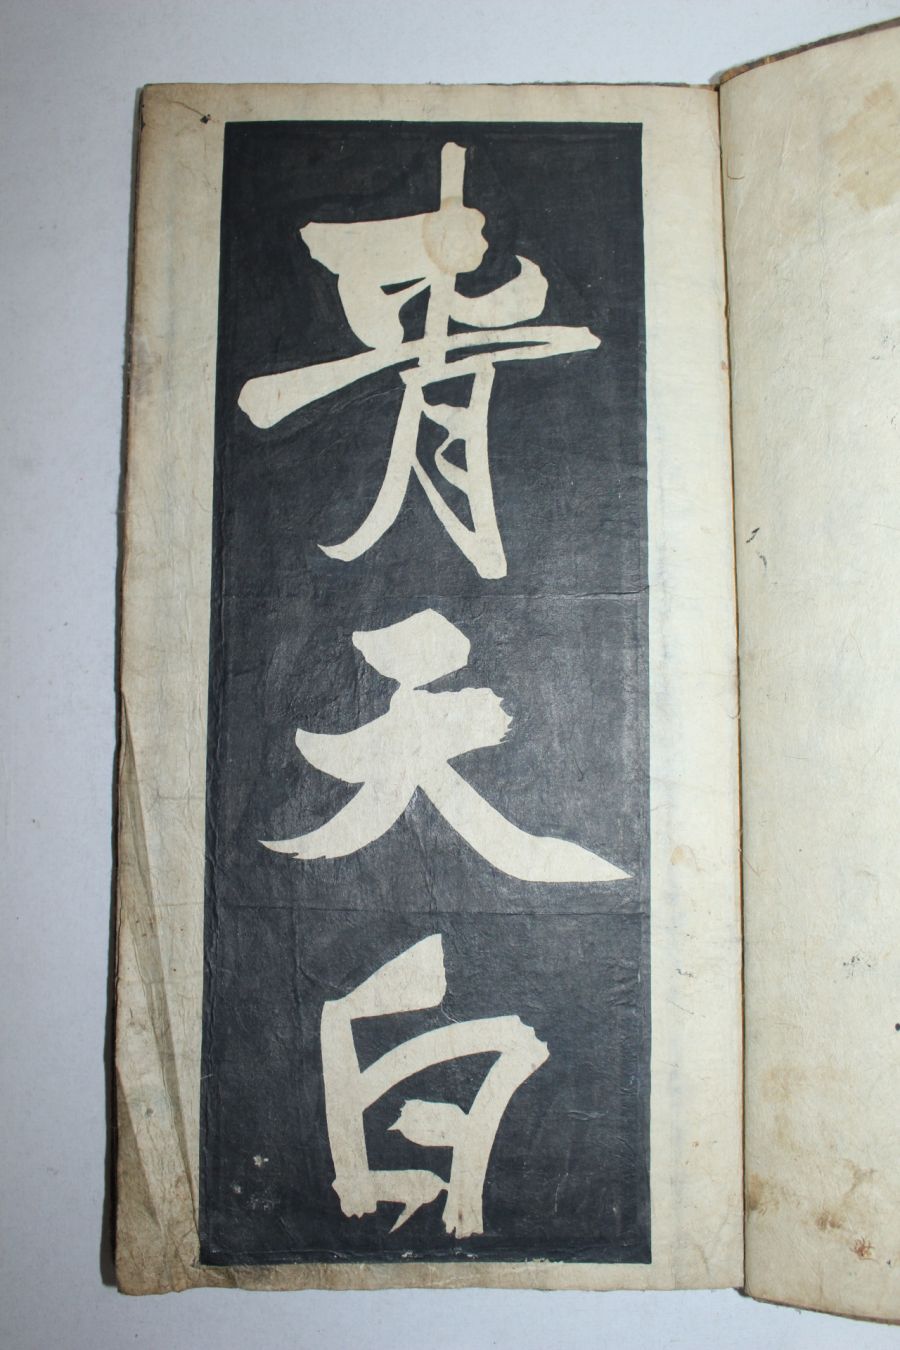 青天白